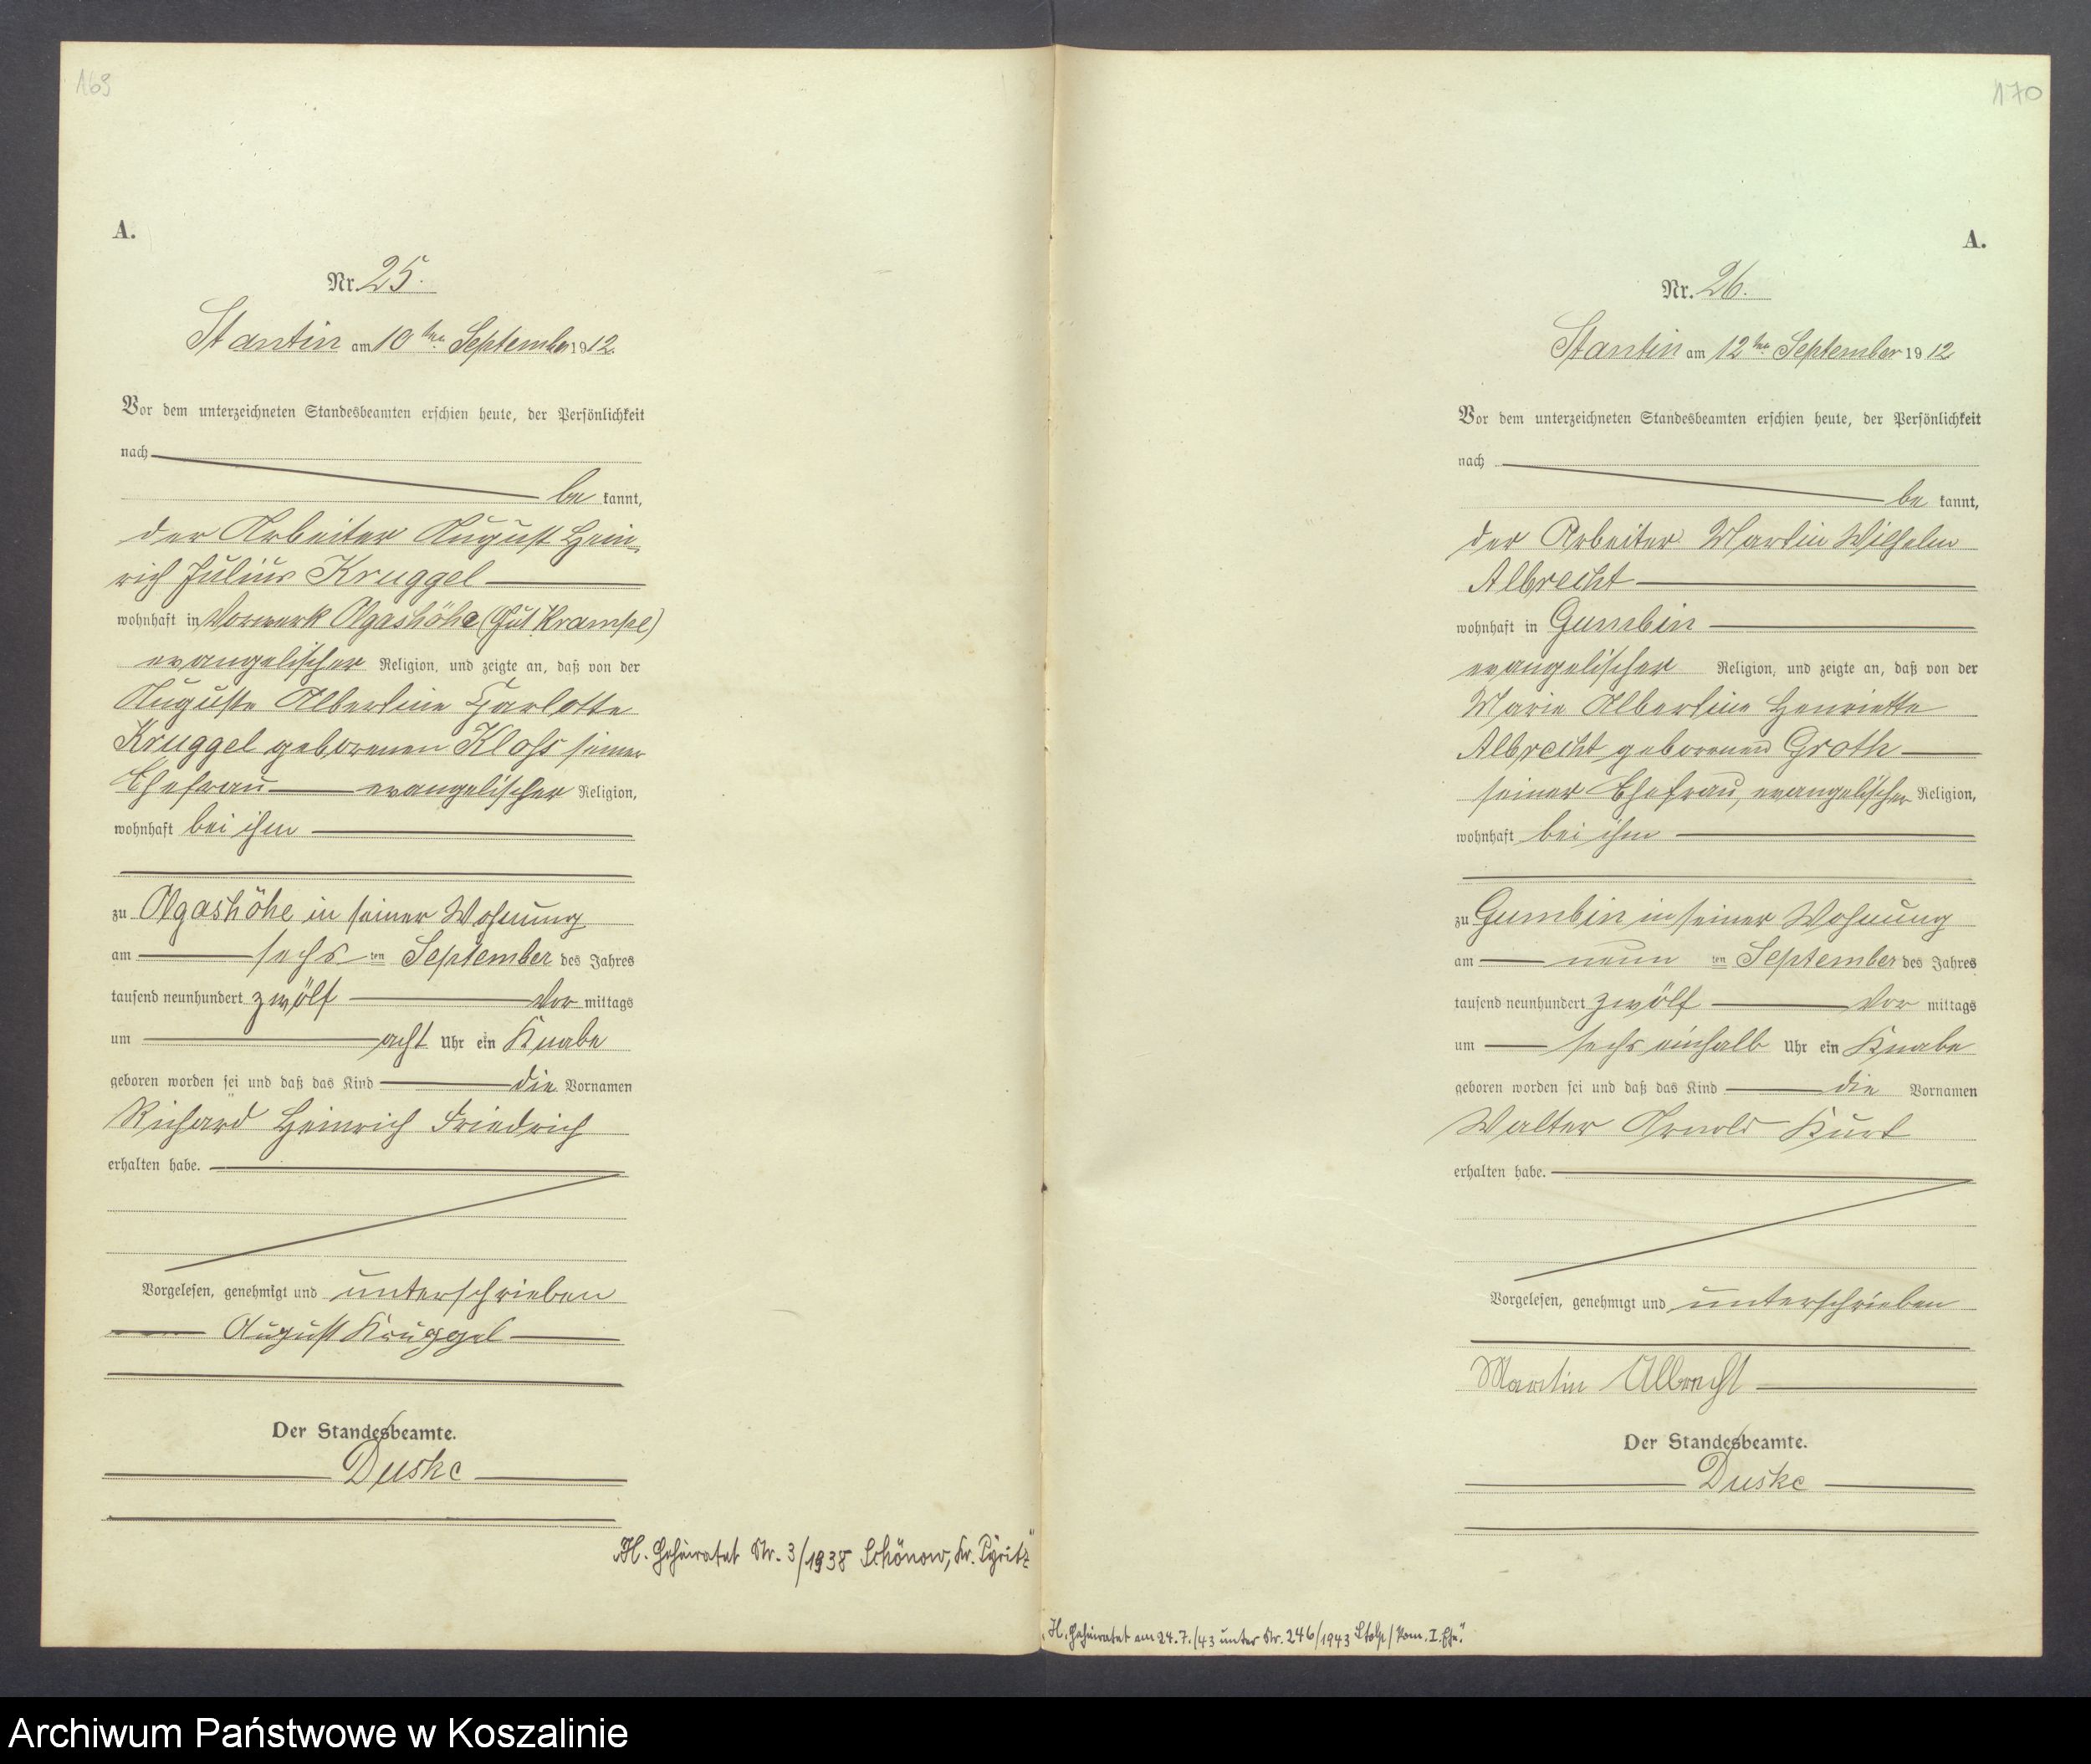 169
A.
Nr. 25.
Stantin am 10ten September 1912.
Vor dem unterzeichneten Standesbeamten erschien heute, der Persönlichkeit
nach
be kannt,
der Arbeiter August Hein-
rich Julius Kruggel
wohnhaft in Vorwerk Olgashöhe (Gut Krampe)
evangelischer Religion, und zeigte an, daß von der
Auguste Albertine Charlotte
Kruggel geborenen Kloss seiner
Ehefrau evangelischer Religion,
wohnhaft bei ihm
zu Olgashöhe in seiner Wohnung
am sechs ten September des Jahres
tausend neunhundert zwölf Vor mittags
um acht Uhr ein Knabe
geboren worden sei und daß das Kind die Vornamen
Richard Heinrich Friedrich
erhalten habe.
Vorgelesen, genehmigt und unterschrieben
August Kruggel
Der Standesbeamte.
Duske
"H. Geheiratet Nr. 3/1938 Schönow, Kr. Pyritz"
170
A.
Nr. 26.
Stantin am 12ten September 1912
Vor dem unterzeichneten Standesbeamten erschien heute, der Persönlichkeit
nach
be kannt,
der Arbeiter Martin Wilhelm
Albrecht
wohnhaft in Gumbin
evangelischer Religion, und zeigte an, daß von der
Marie Albertine Henriette
Albrecht geborenen Groth
seiner Ehefrau, evangelischer Religion,
wohnhaft bei ihm
zu Gumbin in seiner Wohnung
am neun ten September des Jahres
tausend neunhundert zwölf Vor mittags
um sechs einhalb Uhr ein Knabe
geboren worden sei und daß das Kind die Vornamen
Walter Arnold Kurt
erhalten habe.
Vorgelesen, genehmigt und unterschrieben
Martin Albrecht
Der Standesbeamte.
Duske
"H. Geheiratet am 24.7./43 unter Nr. 246/1943 Stolp/Pom. I. Ehe."
Archiwum Państwowe w Koszalinie